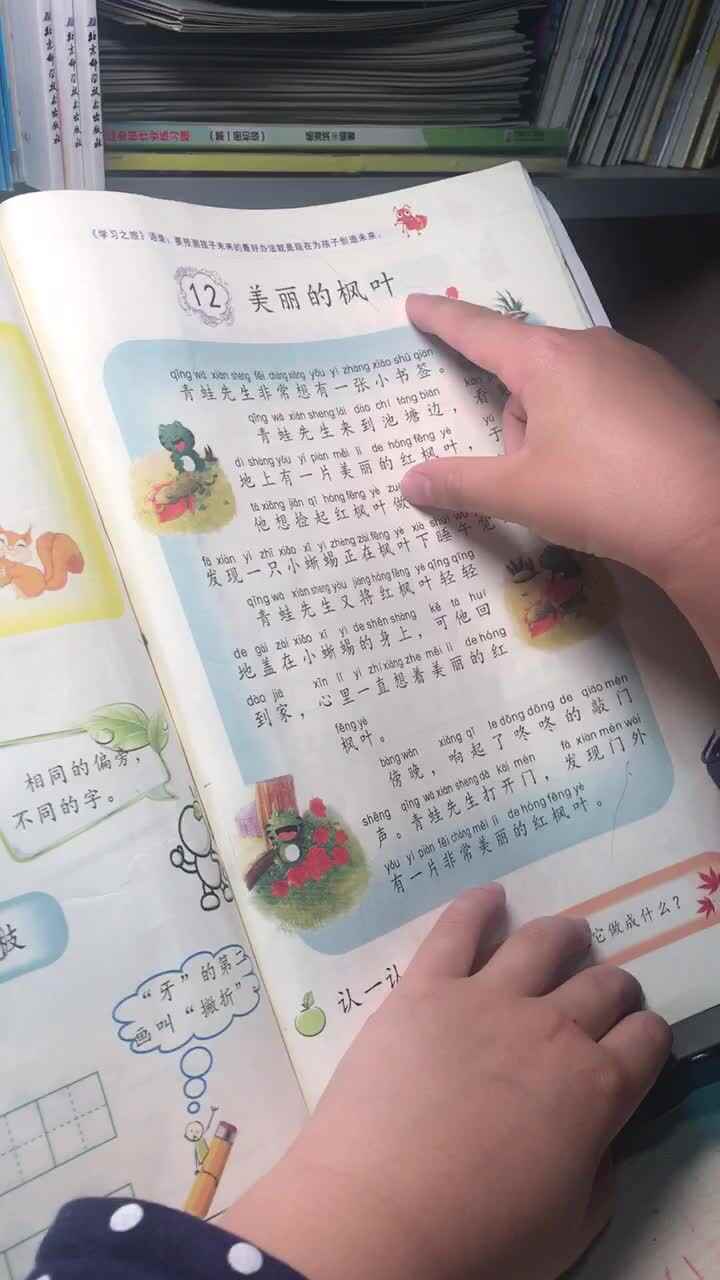 《学习之旅》语录：要预测孩子未来的最好办法就是现在为孩子创造未来。
12 美丽的枫叶
qīng wā xiān sheng fēi cháng xiǎng yǒu yì zhāng xiǎo shū qiān
青蛙先生非常想有一张小书签。
qīng wā xiān sheng lái dào chí táng biān kàn
青蛙先生来到池塘边，看
dì shang yǒu yí piàn měi lì de hóng fēng yè yú
地上有一片美丽的红枫叶，于
tā xiǎng jiǎn qǐ hóng fēng yè zuò
他想捡起红枫叶做
fā xiàn yì zhī xiǎo xī yì zhèng zài fēng yè xià shuì wǔ
发现一只小蜥蜴正在枫叶下睡午觉
qīng wā xiān sheng yòu jiāng hóng fēng yè qīng qīng
青蛙先生又将红枫叶轻轻
de gài zài xiǎo xī yì de shēn shàng kě tā huí
地盖在小蜥蜴的身上，可他回
dào jiā xīn lǐ yì zhí xiǎng zhe měi lì de hóng
到家，心里一直想着美丽的红
fēng yè
枫叶。
bàng wǎn xiǎng qǐ le dōng dōng de qiāo mén
傍晚，响起了咚咚的敲门
shēng qīng wā xiān sheng dǎ kāi mén fā xiàn mén wài
声。青蛙先生打开门，发现门外
yǒu yí piàn fēi cháng měi lì de hóng fēng yè
有一片非常美丽的红枫叶。
它做成什么？
认一认
相同的偏旁，
不同的字。
“牙”的第二
画叫“撇折”